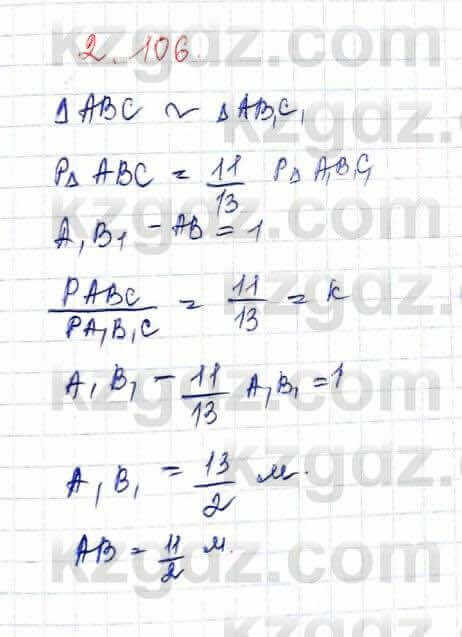 2.106.
Δ ABC ~ Δ AB₁C₁
P∆ ABC = 11/13 P∆ A₁B₁C₁
A₁B₁ - AB = 1
PABC/PA₁B₁C = 11/13 = K
A₁B₁ - 11/13 A₁B₁ = 1
A₁B₁ = 13/2 м.
AB = 11/2 м.
kzgdz.com